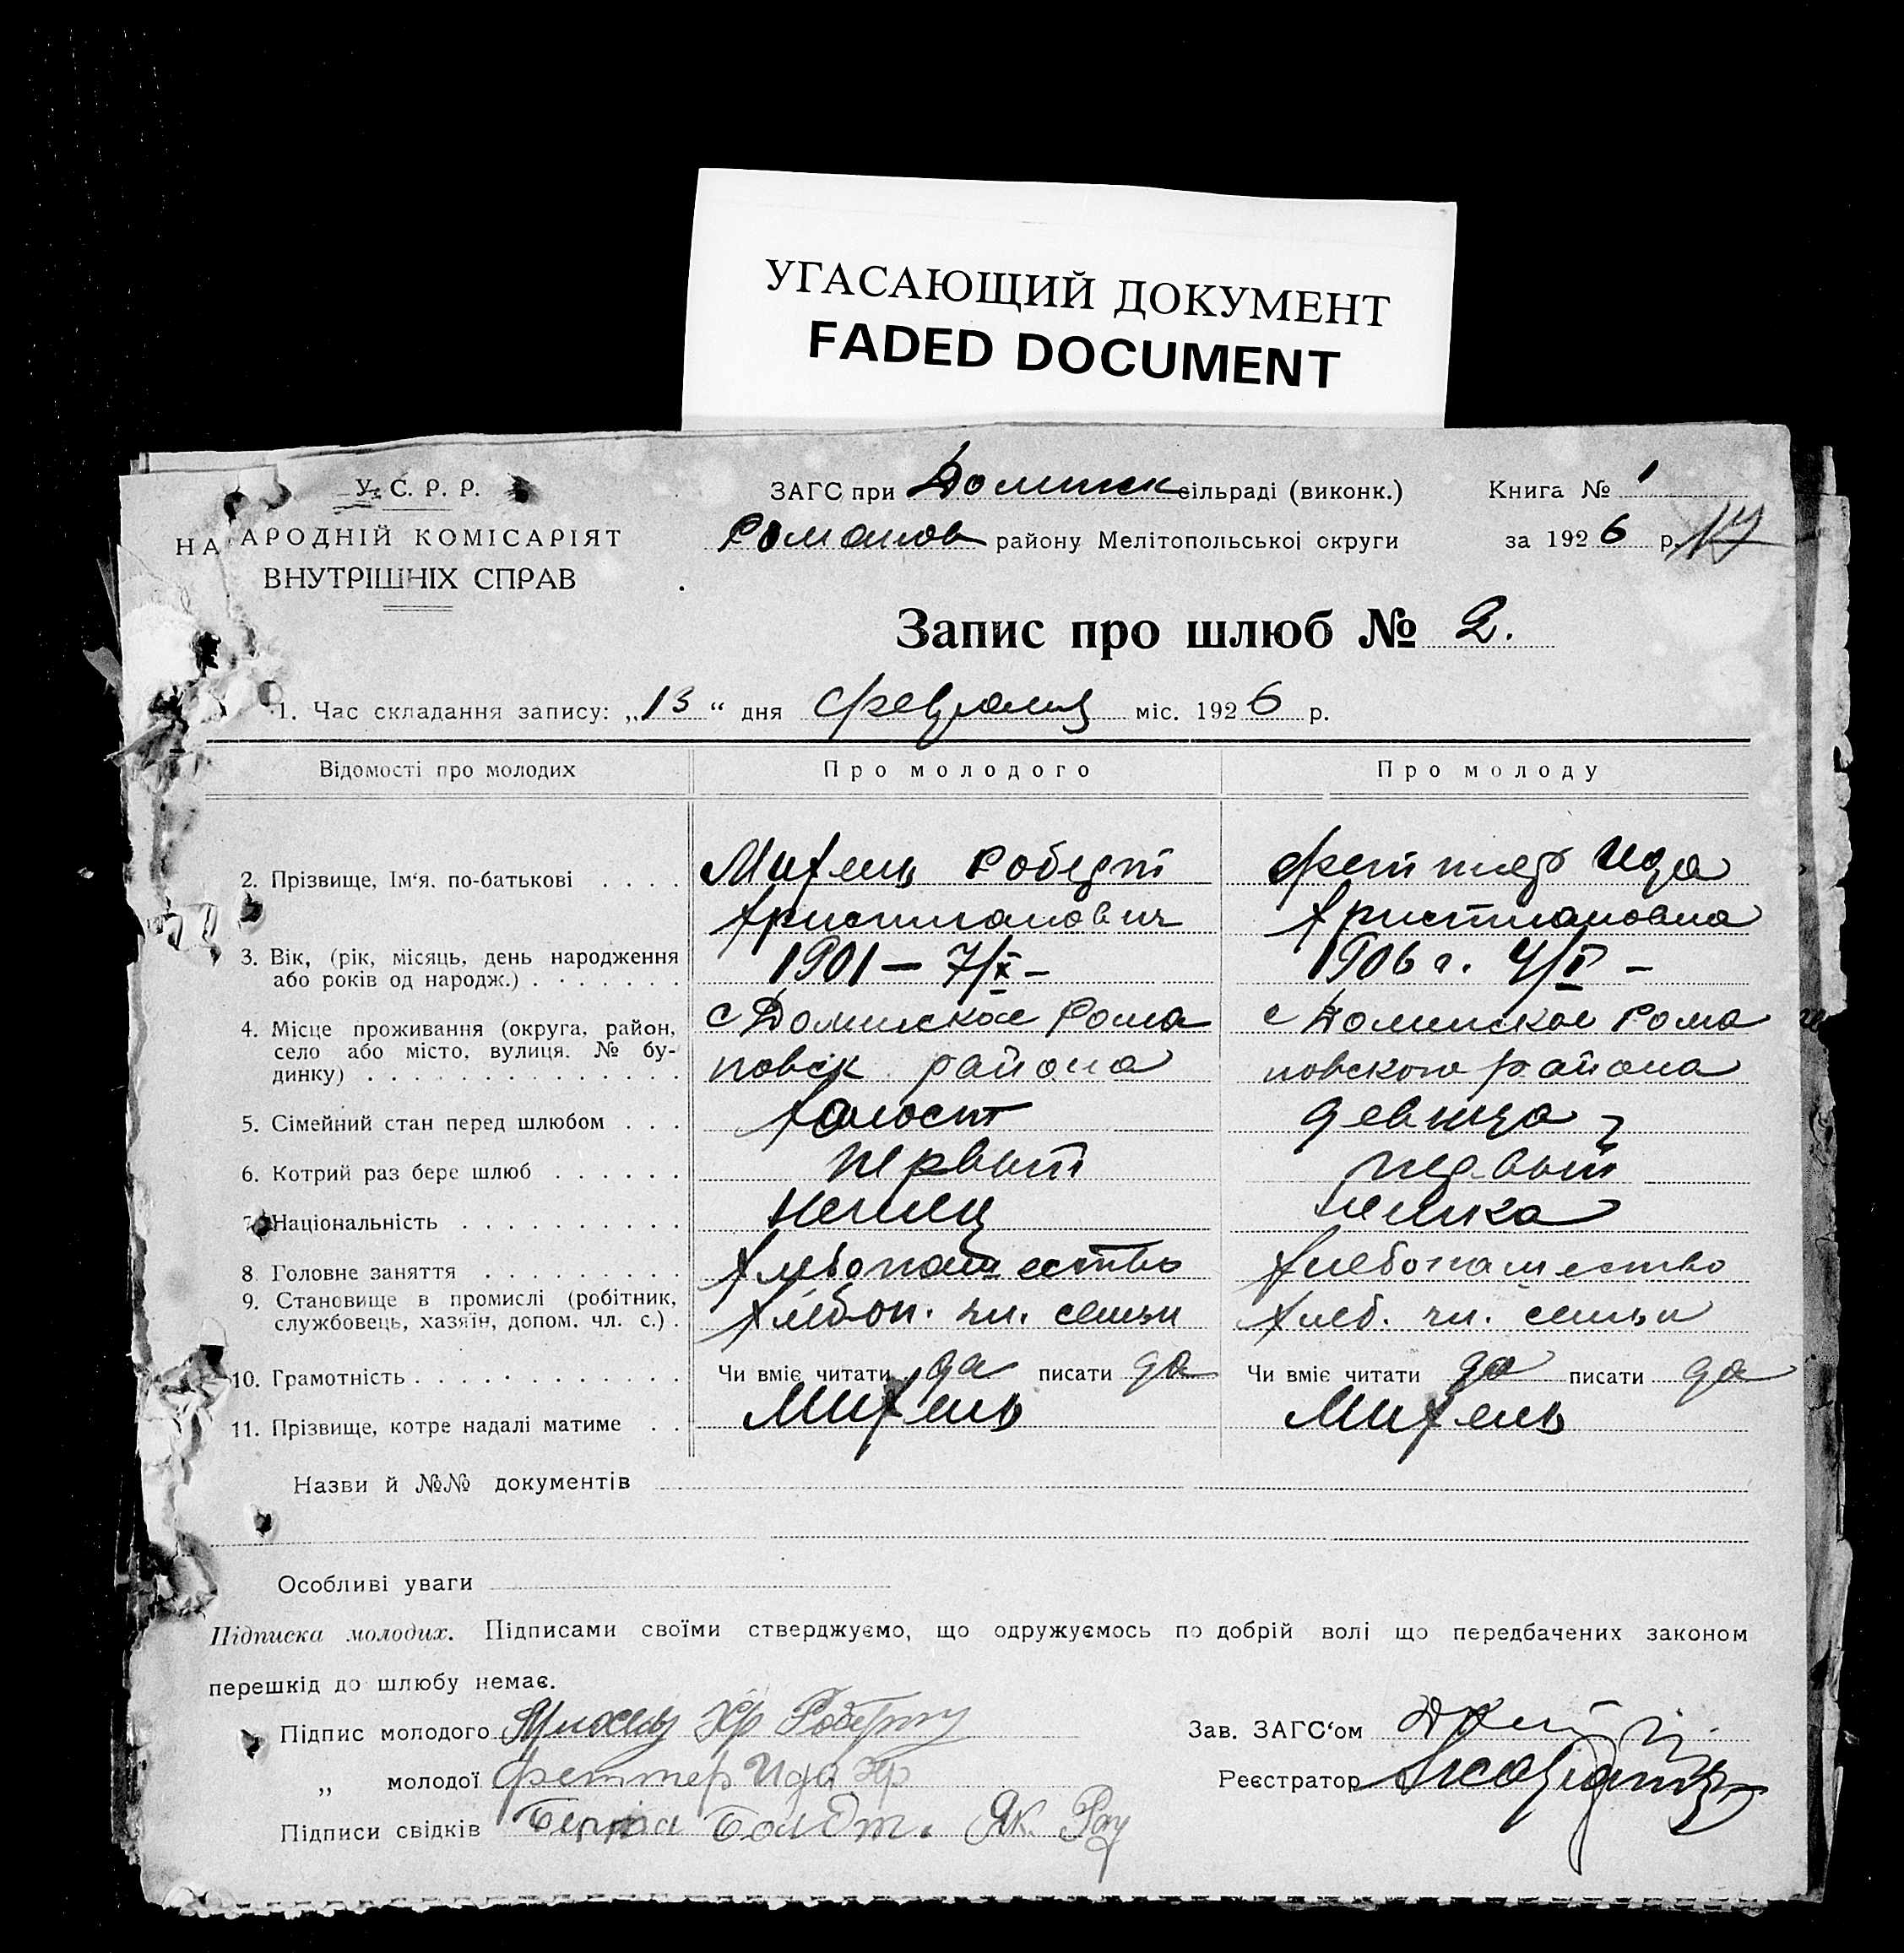 УГАСАЮЩИЙ ДОКУМЕНТ
FADED DOCUMENT
У. С. Р. Р.
НАРОДНІЙ КОМІСАРІЯТ
ВНУТРІШНІХ СПРАВ
ЗАГС при Доминск сільраді (виконк.)
Романов району Мелітопольської округи
Книга № 1
за 1926 р. 17
Запис про шлюб № 2.
1. Час складання запису: „13“ дня февраля міс. 1926 р.
Відомості про молодих Про молодого Про молоду
2. Прізвище, Ім‘я, по-батькові . . . . Михель Роберт Феттер Ида
Христианович Христиановна
3. Вік, (рік, місяць, день народження
або років од народж.) . . . . . . . 1901 – 7/X – 1906 г. 4/I –
4. Місце проживання (округа, район, с Доминское Рома с Доминское Рома
село або місто, вулиця. № бу-
динку) . . . . . . . . . . . . . . новск района новского района
5. Сімейний стан перед шлюбом . . . Холост девица
6. Котрий раз бере шлюб . . . . . . первый первый
7. Національність . . . . . . . . . . немец немка
8. Головне заняття . . . . . . . . . хлебопашество хлебопашество
9. Становище в промислі (робітник,
службовець, хазяїн, допом. чл. с.) . хлебоп. чл. семьи хлеб. чл. семьи
10. Грамотність . . . . . . . . . . . . Чи вміє читати да писати да Чи вміє читати да писати да
11. Прізвище, котре надалі матиме . . Михель Михель
Назви й №№ документів
Особливі уваги
Підписка молодих. Підписами своїми стверджуємо, що одружуємось по добрій волі що передбачених законом
перешкід до шлюбу немає.
Підпис молодого Михель Хр Роберт
„ молодої Феттер Ида Хр
Підписи свідків Берта Болдт. Як. Рау
Зав. ЗАГС‘ом
Реєстратор